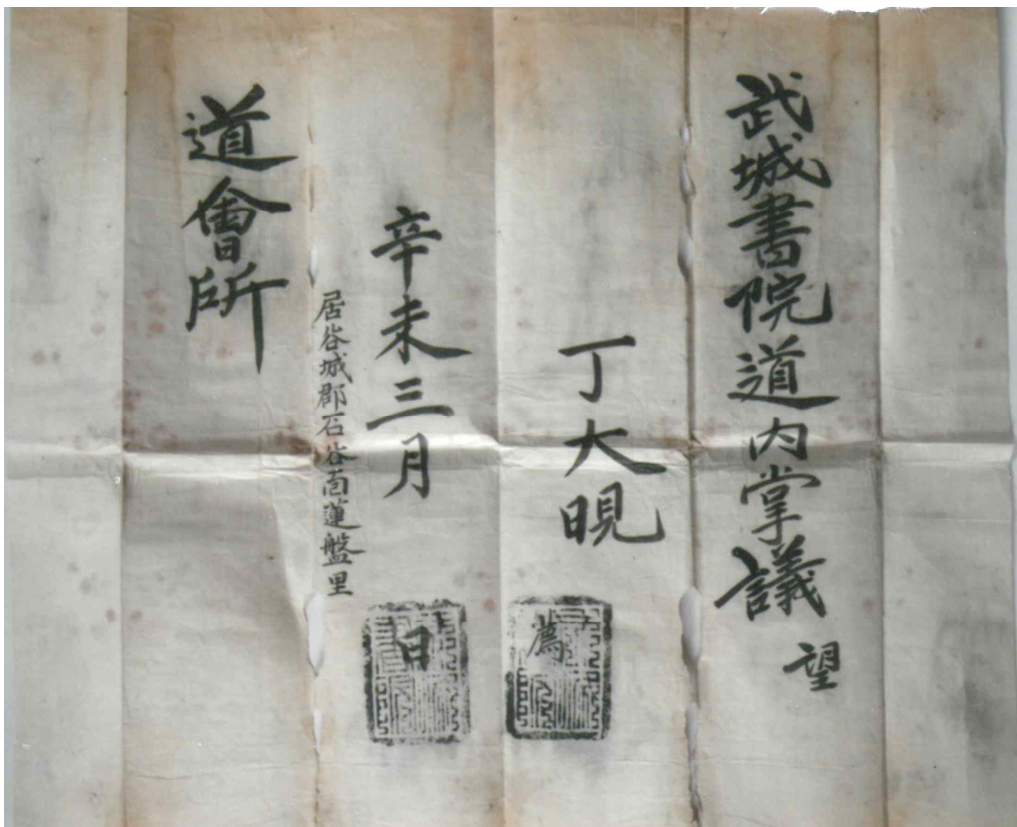 武城書院道内掌議 望
丁大晛 薦
辛未三月 日
居谷城郡石谷面蓮盤里
道會所